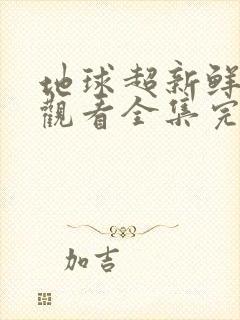 地球超新鲜
觀看全集完
加吉